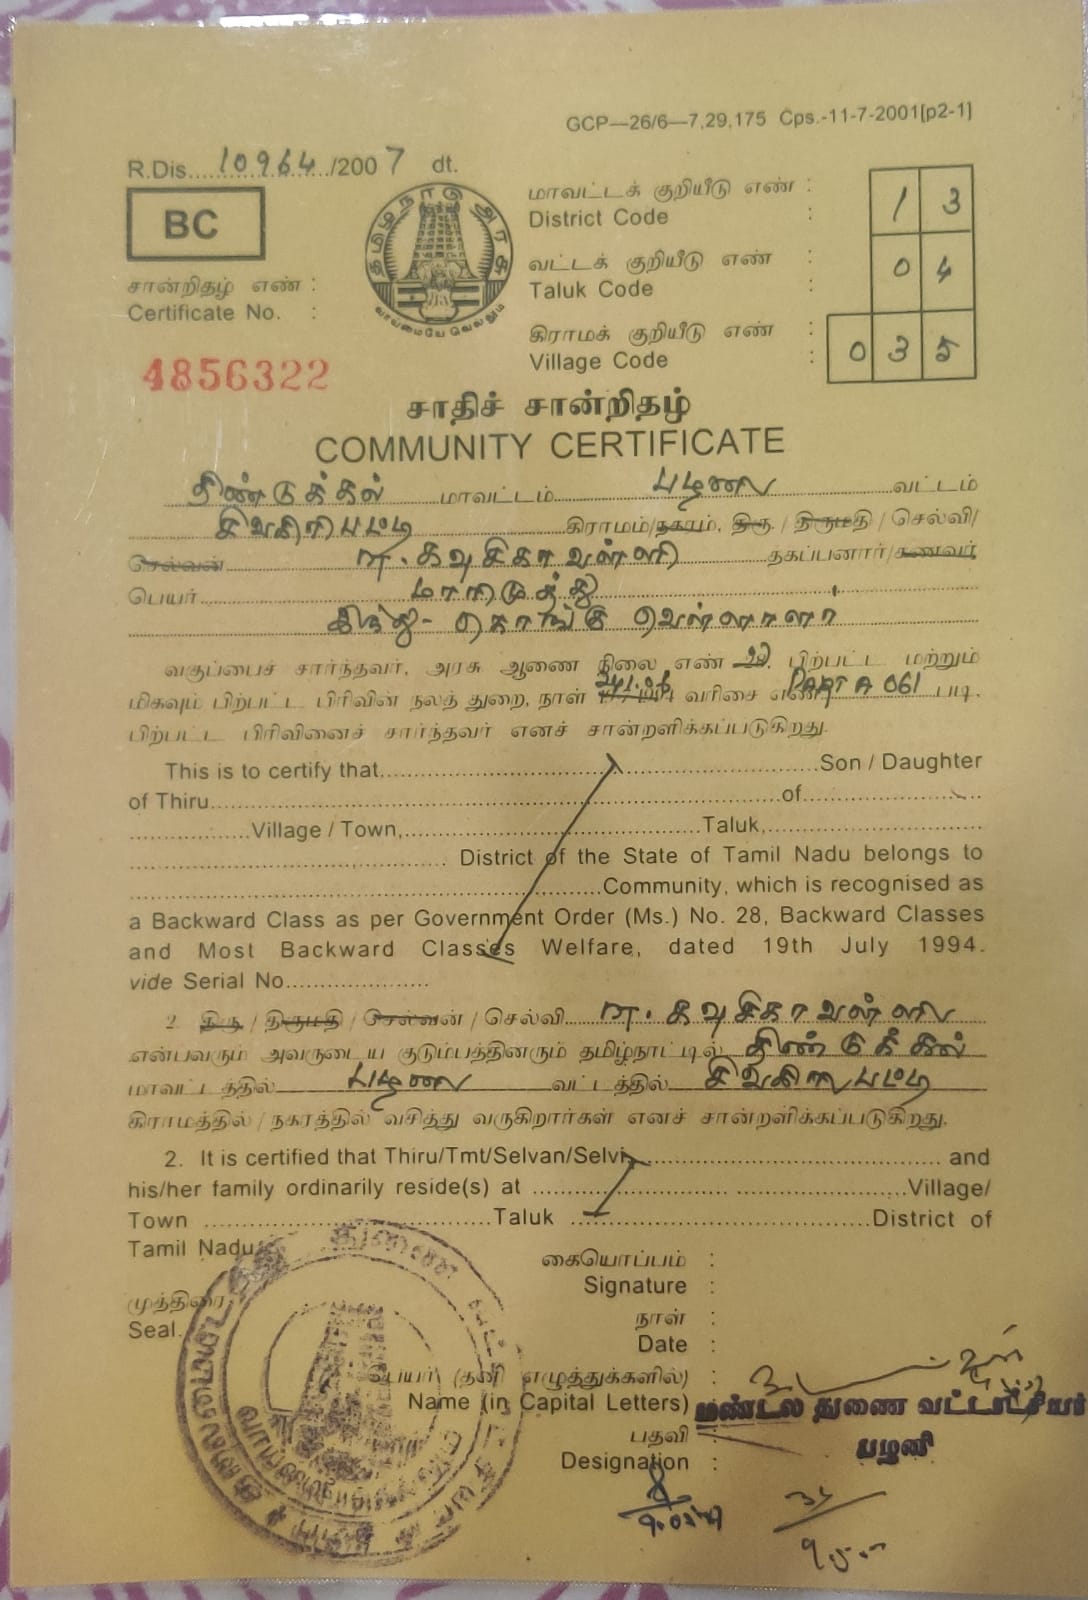 GCP—26/6—7,29,175 Cps.-11-7-2001[p2-1]
R.Dis....10964..../2007 dt.
BC
தமிழ்நாடு அரசு
வாய்மையே வெல்லும்
மாவட்டக் குறியீடு எண் : 1 3
District Code :
வட்டக் குறியீடு எண் : 0 4
Taluk Code :
கிராமக் குறியீடு எண் : 0 3 5
Village Code :
சான்றிதழ் எண் :
Certificate No. :
4856322
சாதிச் சான்றிதழ்
COMMUNITY CERTIFICATE
திண்டுக்கல் மாவட்டம் பழனி வட்டம்
சிவகிரிபட்டி கிராமம்/நகரம், திரு. / திருமதி / செல்வி/
செல்வன் மா. கவுசிகாவள்ளி தகப்பனார்/கணவர்
பெயர்
இந்து - கொங்கு வெள்ளாளர்
வகுப்பைச் சார்ந்தவர், அரசு ஆணை நிலை எண் பிற்பட்ட மற்றும்
மிகவும் பிற்பட்ட பிரிவின் நலத் துறை, நாள் வரிசை எண் PART A 061 படி,
பிற்பட்ட பிரிவினைச் சார்ந்தவர் எனச் சான்றளிக்கப்படுகிறது.
This is to certify that..........Son / Daughter
of Thiru..........of..........
..........Village / Town,..........Taluk,..........
.......... District of the State of Tamil Nadu belongs to
..........Community, which is recognised as
a Backward Class as per Government Order (Ms.) No. 28, Backward Classes
and Most Backward Classes Welfare, dated 19th July 1994.
vide Serial No..........
2. திரு / திருமதி / செல்வன் / செல்வி மா. கவுசிகாவள்ளி
என்பவரும் அவருடைய குடும்பத்தினரும் தமிழ்நாட்டில் திண்டுக்கல்
மாவட்டத்தில் பழனி வட்டத்தில் சிவகிரிபட்டி
கிராமத்தில் / நகரத்தில் வசித்து வருகிறார்கள் எனச் சான்றளிக்கப்படுகிறது.
2. It is certified that Thiru/Tmt/Selvan/Selvi .......... and
his/her family ordinarily reside(s) at .......... ..........Village/
Town ..........Taluk ..........District of
Tamil Nadu.
கையொப்பம் :
Signature :
முத்திரை
Seal.
நாள் :
Date :
பெயர் (தனி எழுத்துக்களில்) :
Name (in Capital Letters)
மண்டல துணை வட்டாட்சியர்
பழனி
பதவி :
Designation :